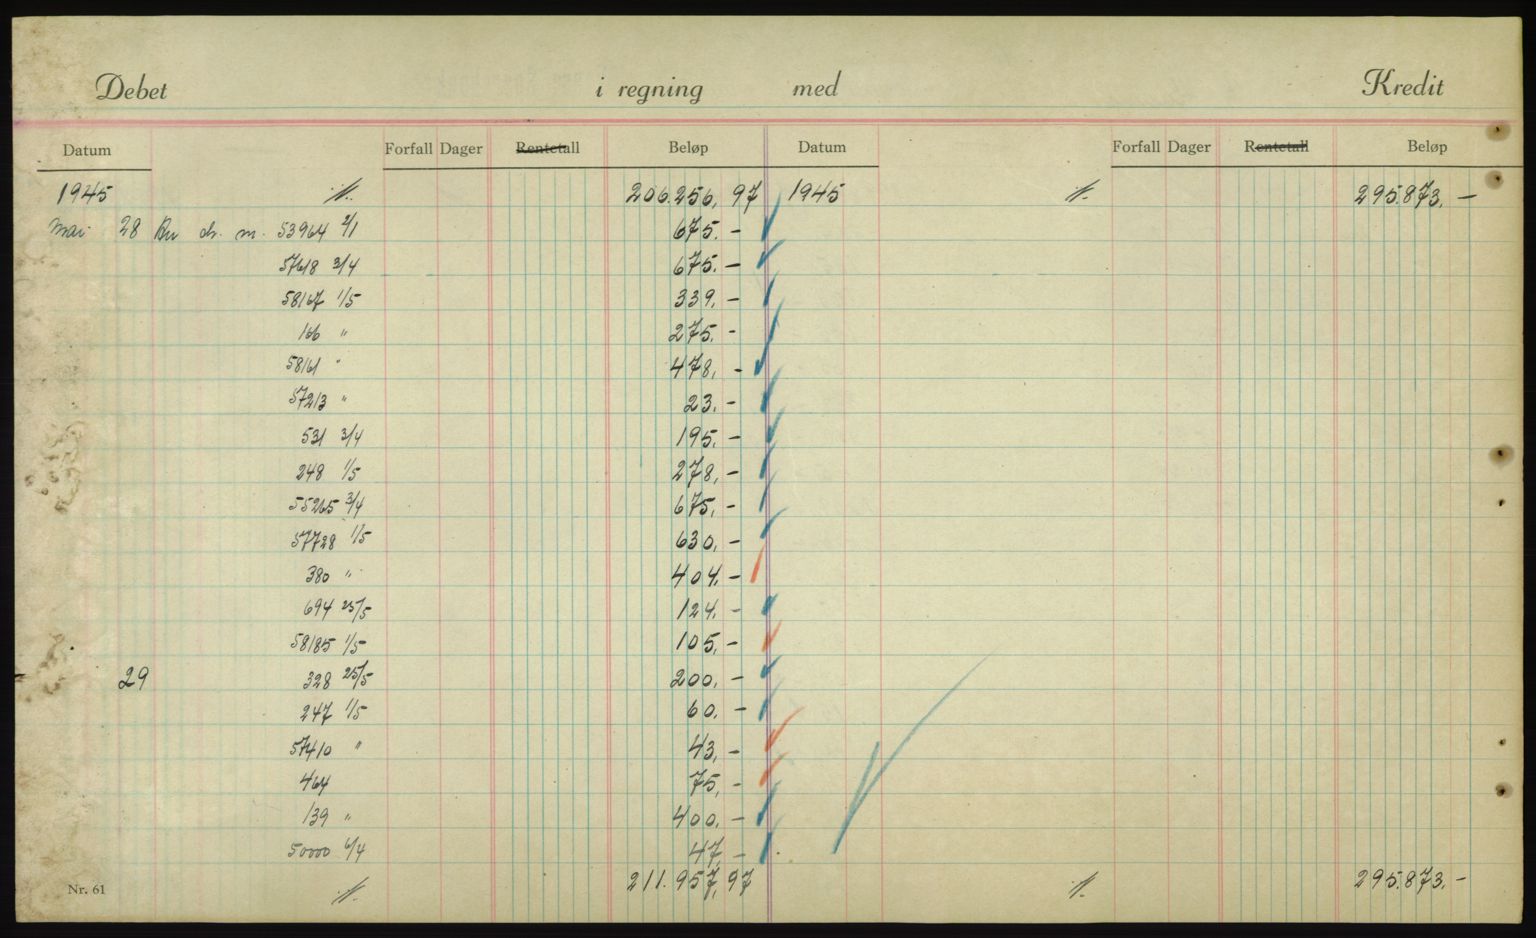 Debet i regning med Kredit
Datum Forfall Dager Rentetall Beløp Datum Forfall Dager Rentetall Beløp
1945 206.256,97 1945 295.873.-
Mai 28 53964 2/1 675.-
57618 3/4 675.-
58167 1/5 339.-
166 " 275.-
58161 " 478.-
57213 " 23.-
531 3/4 195.-
248 1/5 278.-
55265 3/4 675.-
57728 1/5 630.-
380 " 404.-
694 25/5 124.-
58185 1/5 105.-
29 328 25/5 200.-
247 1/5 60.-
57410 " 43.-
464 75.-
139 " 400.-
50000 6/4 47.-
211.957,97 295.873.-
Nr. 61